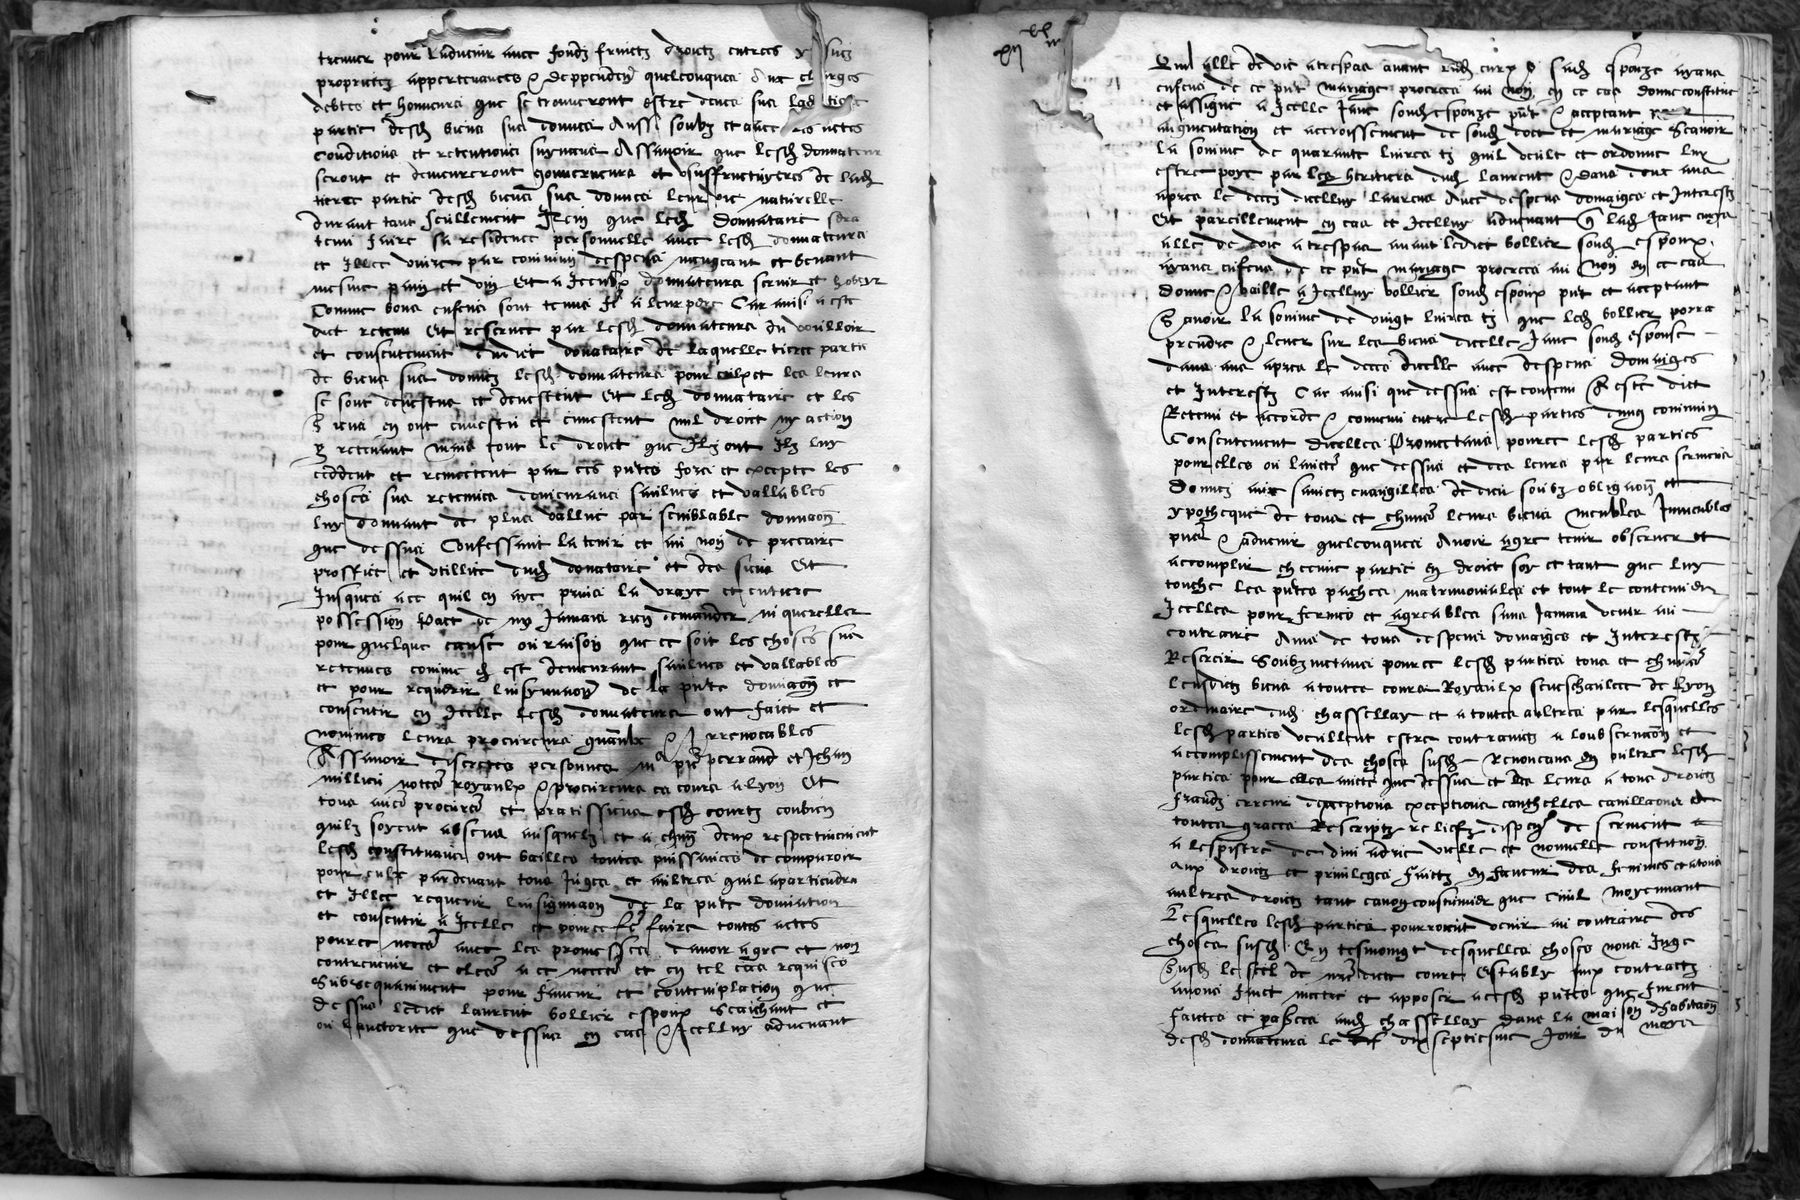 trenver pour ladvenir avec fondz fruictz droictz entrees y
proprietez appertenances & deppendences quelconques
debtes et honneurs que se trouveront estre deues sus lad tierce
partie desd biens sus donnes Aussi soubz et avec
conditions et retentions suyvans Assavoir que lesd donnateurs
seront et demeureront gouverneurs et usuffructuyeres de lad
tierce partie desd biens sus donnes leur vie naturelle
durant tant seullement Item que led donnataire sera
tenu faire sa residence personnelle avec lesd donnateurs
et illec vivre par commun despens mangeant et beuvant
mesme pain et vin Et a iceulx donnateurs servir et hobeyr
Comme bons enfens sont tenus a leur pere Car ainsi a este
dict retenu Et reserve par lesd donnateurs du voulloir
et consentement dudict donataire De laquelle tierce partie
de biens sus donnez lesd donnateurs pour eulx et les leurs
se sont devestus et devestent Et led donnataire et les
siens en ont envestu et envestent nul droict ny action
y retenant mais tout le droit que ilz ont ilz luy
ceddent et remectent par ces pntes fors et excepte les
choses sus retenues demeurans saulves et vallables
luy donnant de plus vallue par semblable donnaon
que dessus Confessant la tenir et au nom de precaire
proffict et utillite dud donataire et des siens Et
Jusques a ce quil en aye prins la vraye et entiere
possession Pact de ny jamais rien demander ni quereller
pour quelque cause ou raison que ce soit les choses sus
retenues comme est demeurant saulves et vallables
et pour requerir linsynuaon de la pnte donnaon et
consentir en icelle lesd donnateurs ont faict et
nommes leurs procureurs gnaulx & irrevocables
Assavoir discretes personnes me pre perrand et Jehan
millieu notes royaulx & procureurs es cours a lyon Et
tous aues procures et praticiens esd courtz combien
quilz soyent absens ausquelz et a chun deux respectivement
lesd constituans ont bailles toutes puissances de comparoir
pour eulx pardevant tous Juges et aultres quil apartiendra
et illec requerir linsignuaon de la pnte donnation
et consentir a icelle et pource faire toutes actes
pource necces avec les promesses davoir agre et non
contrevenir et eleces a ce necces et en tel cas requises
Subsequamment pour faveur et contemplation que
dessus ledict laurent bollier espoux Scaichant et
ou lauctorite que dessus en cas & icelluy advenant
Quil alle de vie a trespas avant lad sad espouze ayans
enfens de ce pnt mariage procrees au non en ce cas donne constitue
et assigne a icelle Jane soud espouze pnt & aceptant
augmentation et accroissement de soud doct et mariage Scavoir
la somme de quarante livres tz quil veult et ordonne luy
estre poye par les heritiers dud laurent & dans deux ans
apres le deces dicelluy laurens avec despens domaiges et interestz
Et pareillement en cas et icelluy advenant que lad Jane
alle de vie a trespas avant ledict bollier soud espoux
ayans enfens de ce pnt mariage procrees au non en ce cas
donne & baille a icelluy bollier soud espoux pnt et aceptant
Scavoir la somme de vingt livres tz que led bollier porra
prendre & lever sur les biens dicelle Jane soud espouse
dans ans apres le deces dicelle avec despens domaiges
et interestz Car ainsi que dessus est contenu A este dict
Retenu et accorde & convenu entre lesd parties dung commun
Consentement dicelles Promectans pource lesd parties
pour elles ou laucte que dessus et des leurs par leurs sermens
donnez aux sainctz euangilles de dieu soubz obliganon et
ypotheque de tous et chunes leurs biens meubles Inmeubles
pns & advenir quelconques Avoir agre tenir observer et
accomplir chescune partie en droict soy et tant que luy
touche les pntes paches matrimoniales et tout le contenu en
icelles pour fermes et agreables sans Jamais venir au
contraire Ains de tous despens domaiges et interestz
Reserver Soubzmectans pource lesd parties tous et chunes
leursdictz biens a toutes cours Royaulx seneschaulcee de lyon
ordinaire dud chassellay et a toutes aultres par lesquelles
lesd parties veullent estre contrainctz a lobservaon et
accomplissement des choses susd Renoncans en oultre lesd
parties pour elles aucte que dessus et les leurs a tous droictz
fraudz erreur deceptions exceptions cauthelles cavillaons et
toutes graces Rescriptz reliefz dispense de serment et
a lespistre de divi adrie vielle et nouvelle constitunon
aux droictz et privileges faictz en faveur des femmes et a tous
aultres droictz tant canon coustumier que civil moyennant
Lesquelles lesd parties pourroient venir au contraire des
choses susd En tesmoingt desquelles choses nous Juge
susd le scel de nre dicte court Estably aux contractz
avons faict mectre et apposer a cesd pntes que furent
faictes et passees aud chassellay dans la maison dhabitaon
desd donnateurs le dix septiesme jour du moys